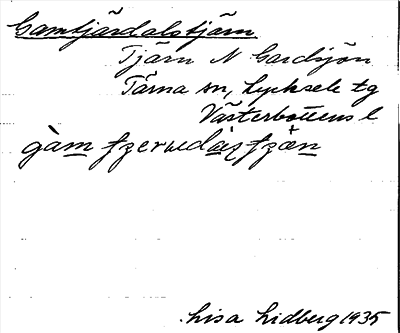 Gamtjärdalstjärn
Tjärn N Gardsjön
Tärna sn, Lycksele tg
Västerbottens l
Lisa Lidberg 1935